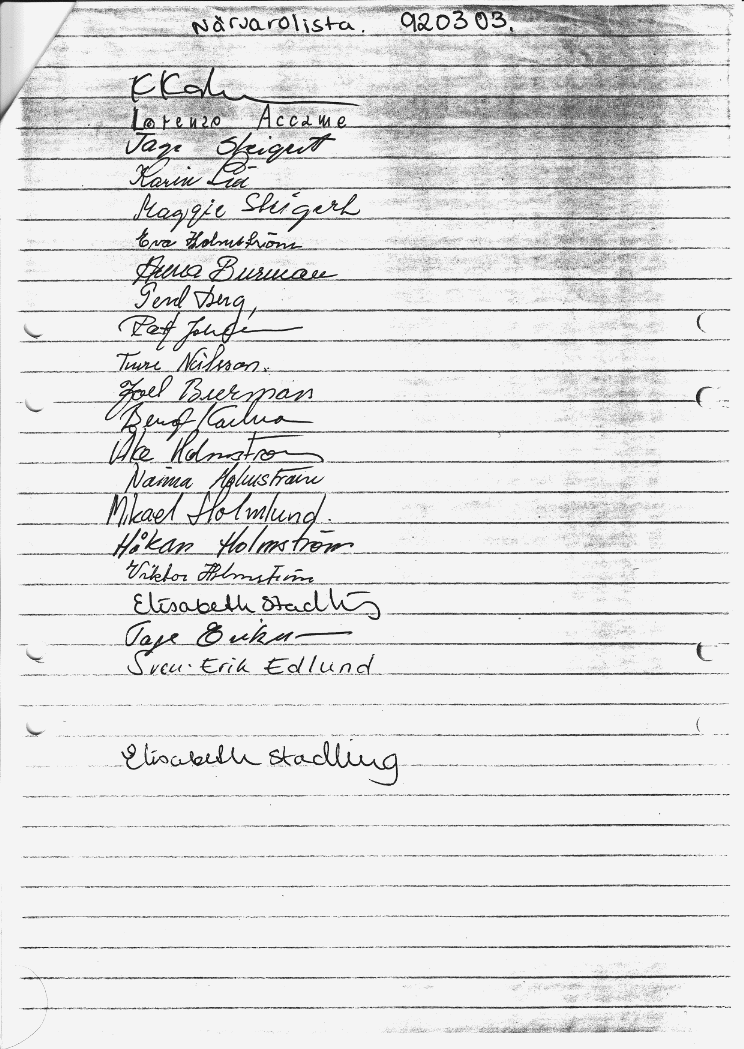 Närvarolista. 920303.
Lorenzo Accame
Tage
Karin Liä
Maggie
Eva Holmström
Anna Burman
Gerd Berg
Ture Nilsson.
Joel Buerman
Bengt
Åke Holmström
Nanna Holmström
Mikael Holmlund
Håkan Holmström
Viktor Holmström
Elisabeth Stadling
Tage
Sven-Erik Edlund
Elisabeth Stadling